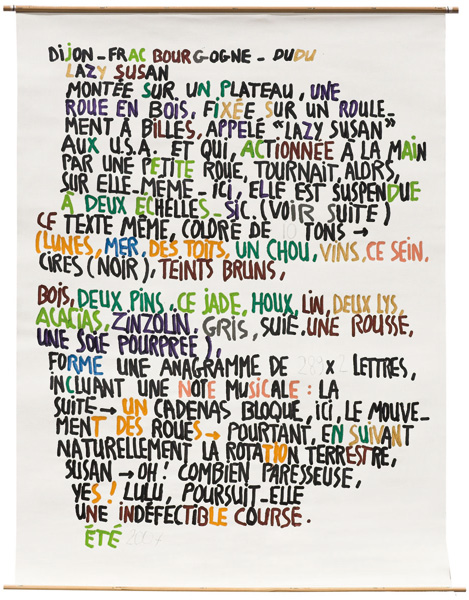 DIJON_FRAC BOURGOGNE_ DUDU
LAZY SUSAN
MONTÉE SUR UN PLATEAU, UNE
ROUE EN BOIS, FIXÉE SUR UN ROULE_
MENT À BILLES, APPELÉ "LAZY SUSAN"
AUX U.S.A. ET QUI, ACTIONNÉE À LA MAIN
PAR UNE PETITE ROUE, TOURNAIT, ALORS,
SUR ELLE-MÊME_ ICI, ELLE EST SUSPENDUE
À DEUX ÉCHELLES_ SIC. (VOIR SUITE)
CE TEXTE MÊME, COLORÉ DE 10 TONS →
(LUNES, MER, DES TOITS, UN CHOU, VINS, CE SEIN,
CIRES (NOIR), TEINTS BRUNS,
BOIS, DEUX PINS, CE JADE, HOUX, LIN, DEUX LYS,
ACACIAS, ZINZOLIN, GRIS, SUIE. UNE ROUSSE,
UNE SOIE POURPRÉE),
FORME UNE ANAGRAMME DE 289 x 2 LETTRES,
INCLUANT UNE NOTE MUSICALE : LA
SUITE → UN CADENAS BLOQUE, ICI, LE MOUVE_
MENT DES ROUES → POURTANT, EN SUIVANT
NATURELLEMENT LA ROTATION TERRESTRE,
SUSAN → OH ! COMBIEN PARESSEUSE,
YES ! LULU, POURSUIT_ELLE
UNE INDÉFECTIBLE COURSE.
ÉTÉ 2007